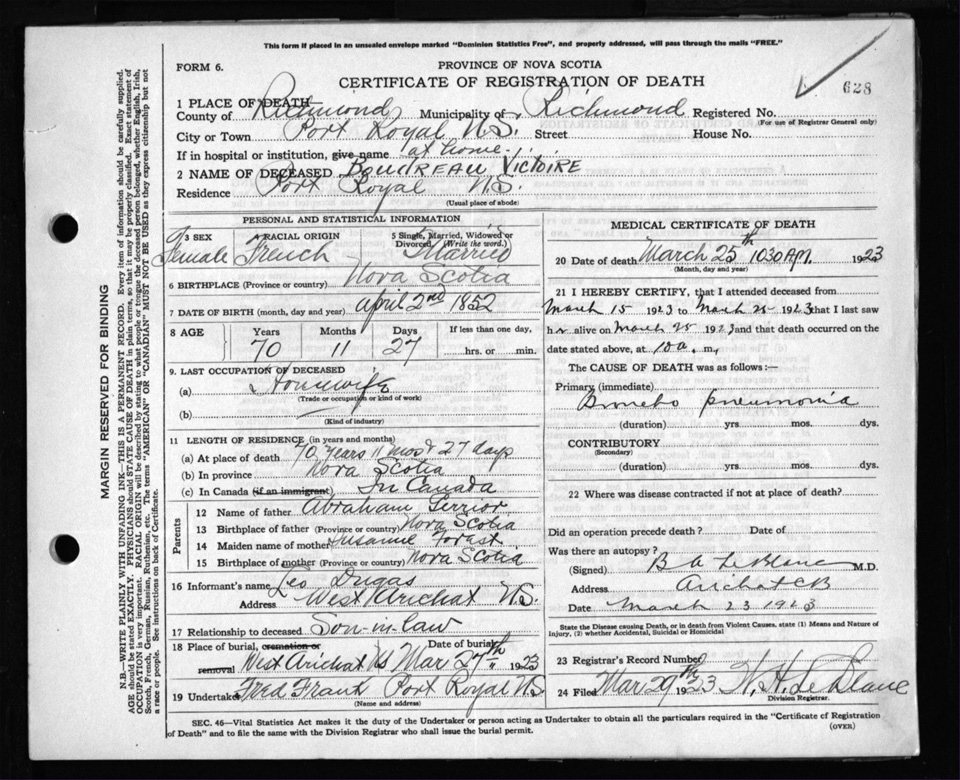 This form if placed in an unsealed envelope marked "Dominion Statistics Free", and properly addressed, will pass through the mails "FREE."
FORM 6.
PROVINCE OF NOVA SCOTIA
CERTIFICATE OF REGISTRATION OF DEATH
628
1 PLACE OF DEATH
County of Richmond Municipality of Richmond Registered No.
(For use of Registrar General only)
City or Town Port Royal N.S. Street House No.
If in hospital or institution, give name at home
2 NAME OF DECEASED BOUDREAU VICTOIRE
Residence Port Royal N.S.
(Usual place of abode)
PERSONAL AND STATISTICAL INFORMATION
3 SEX 4 RACIAL ORIGIN 5 Single, Married, Widowed or Divorced (Write the word.)
Female French Married
6 BIRTHPLACE (Province or country) Nova Scotia
7 DATE OF BIRTH (month, day and year) April 2nd 1852
8 AGE Years Months Days If less than one day,
70 11 27 hrs. or min.
9. LAST OCCUPATION OF DECEASED
(a) Housewife
(Trade or occupation or kind of work)
(b)
(Kind of industry)
11 LENGTH OF RESIDENCE (in years and months)
(a) At place of death 70 years 11 mos & 27 days
(b) In province Nova Scotia
(c) In Canada (if an immigrant) In Canada
Parents
12 Name of father Abraham Terrior
13 Birthplace of father (Province or country) Nova Scotia
14 Maiden name of mother Susanne Forest
15 Birthplace of mother (Province or country) Nova Scotia
16 Informant's name Leo Dugas
Address West Arichat N.S.
17 Relationship to deceased Son-in-law
18 Place of burial, cremation or removal Date of burial
West Arichat NS Mar 27th 1923
19 Undertaker Fred Frank Port Royal NS
(Name and address)
MEDICAL CERTIFICATE OF DEATH
20 Date of death March 25th 1030 AM. 1923
(Month, day and year)
21 I HEREBY CERTIFY, that I attended deceased from
March 15 1923 to March 25 1923 that I last saw
her alive on March 25 1923 and that death occurred on the
date stated above, at 10 a. m,
The CAUSE OF DEATH was as follows:—
Primary (immediate)
Broncho pneumonia
(duration) yrs. mos. dys.
CONTRIBUTORY
(Secondary)
(duration) yrs. mos. dys.
22 Where was disease contracted if not at place of death?
Did an operation precede death? Date of
Was there an autopsy?
(Signed) B A LeBlanc M.D.
Address Arichat CB
Date March 23 1923
State the Disease causing Death, or in death from Violent Causes, state (1) Means and Nature of Injury, (2) whether Accidental, Suicidal or Homicidal
23 Registrar's Record Number
24 Filed Mar 29th 1923 H. H. LeBlanc
Division Registrar.
SEC. 46—Vital Statistics Act makes it the duty of the Undertaker or person acting as Undertaker to obtain all the particulars required in the "Certificate of Registration
of Death" and to file the same with the Division Registrar who shall issue the burial permit.
(OVER)
MARGIN RESERVED FOR BINDING
N.B.—WRITE PLAINLY WITH UNFADING INK—THIS IS A PERMANENT RECORD. Every item of information should be carefully supplied.
AGE should be stated EXACTLY. PHYSICIANS should STATE CAUSE OF DEATH in plain terms, so that it may be properly classified. Exact statement of
OCCUPATION is very important. RACIAL ORIGIN will be described by stating to what people or tongue the deceased person belonged, whether English, Irish,
Scotch, French, German, Russian, Ruthenian, etc. The terms "AMERICAN" OR "CANADIAN" MUST NOT BE USED as they express citizenship but not
a race or people. See instructions on back of Certificate.